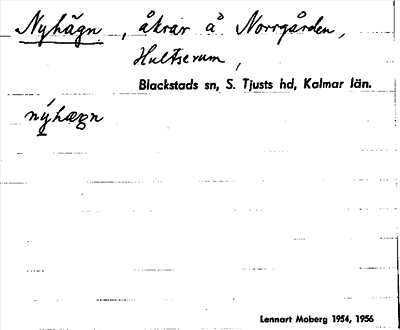 Nyhägn, åkrar å Norrgården,
Hultserum,
Blackstads sn, S. Tjusts hd, Kalmar län.
nýhæŋn
Lennart Moberg 1954, 1956